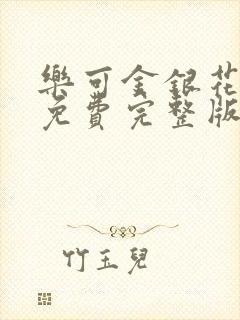 樂可金銀花
免費完整版
竹玉兒